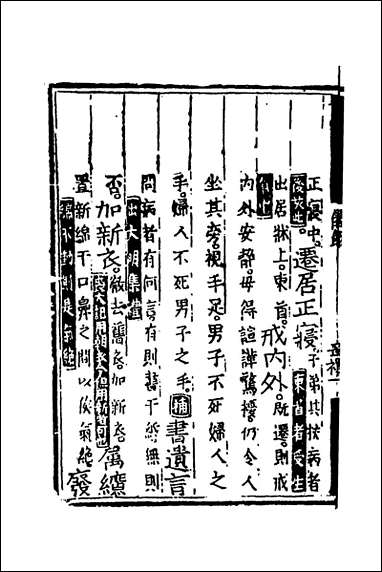 正寢中。遷居正寢子弟共扶病者
出居牀上。東首。戒内外。既遷。則戒東首者受生
内外安靜。毋得諠譁驚擾。仍令人
坐其旁。視手足。男子不死婦人之
手。婦人不死男子之手。補書遺言
問病者有何言。有則書于紙。無則
否。加新衣。徹去舊衣加新衣。屬纊
置新綿于口鼻之間以俟氣絶廢
出大明集禮
綿不動則是氣絶